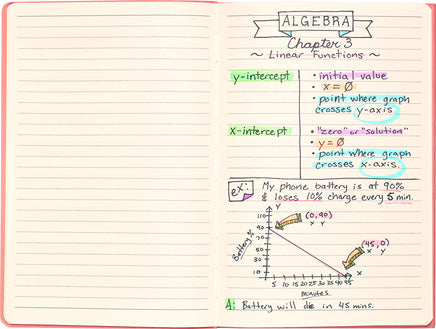 ALGEBRA
Chapter 3
~ Linear Functions ~
y-intercept
• initial value
• x = 0
• point where graph
crosses y-axis.
x-intercept
• "zero" or "solution"
• y = 0
• point where graph
crosses x-axis.
ex: My phone battery is at 90%
& loses 10% charge every 5 min.
Y
110
90
70
50
30
10
Battery %
(0,90)
X Y
(45,0)
X Y
X
5 10 15 20 25 30 35 40 45
minutes
A: Battery will die in 45 mins.